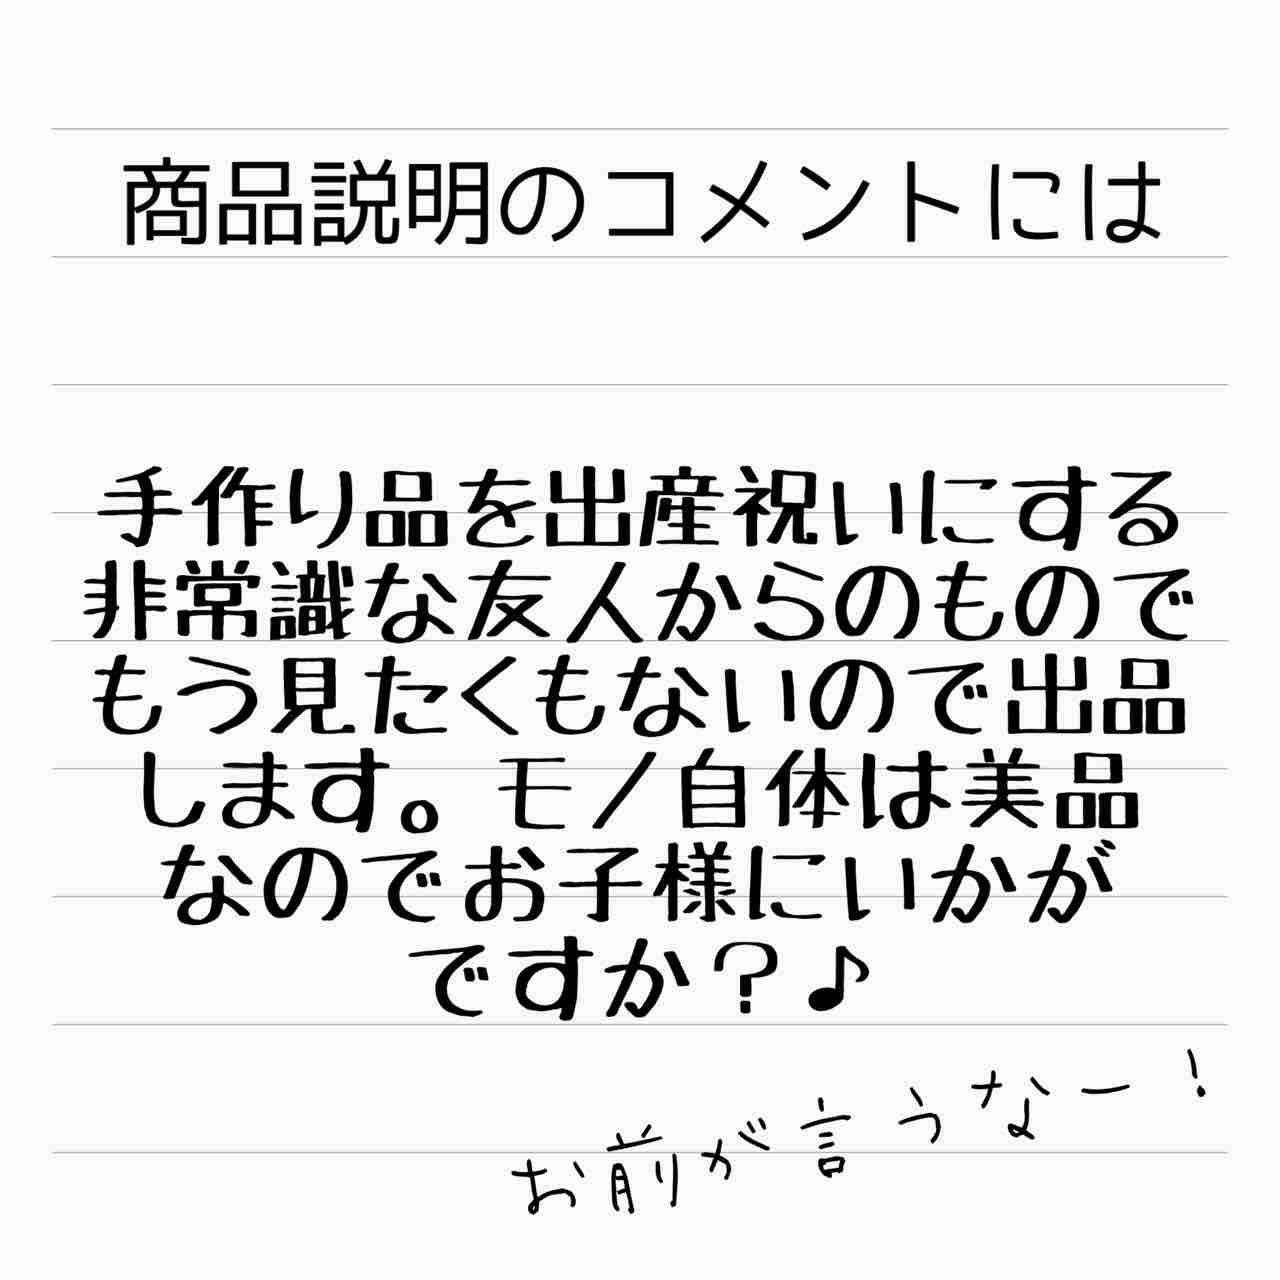 商品説明のコメントには
手作り品を出産祝いにする
非常識な友人からのもので
もう見たくもないので出品
します。モノ自体は美品
なのでお子様にいかが
ですか？♪
お前が言うなー！